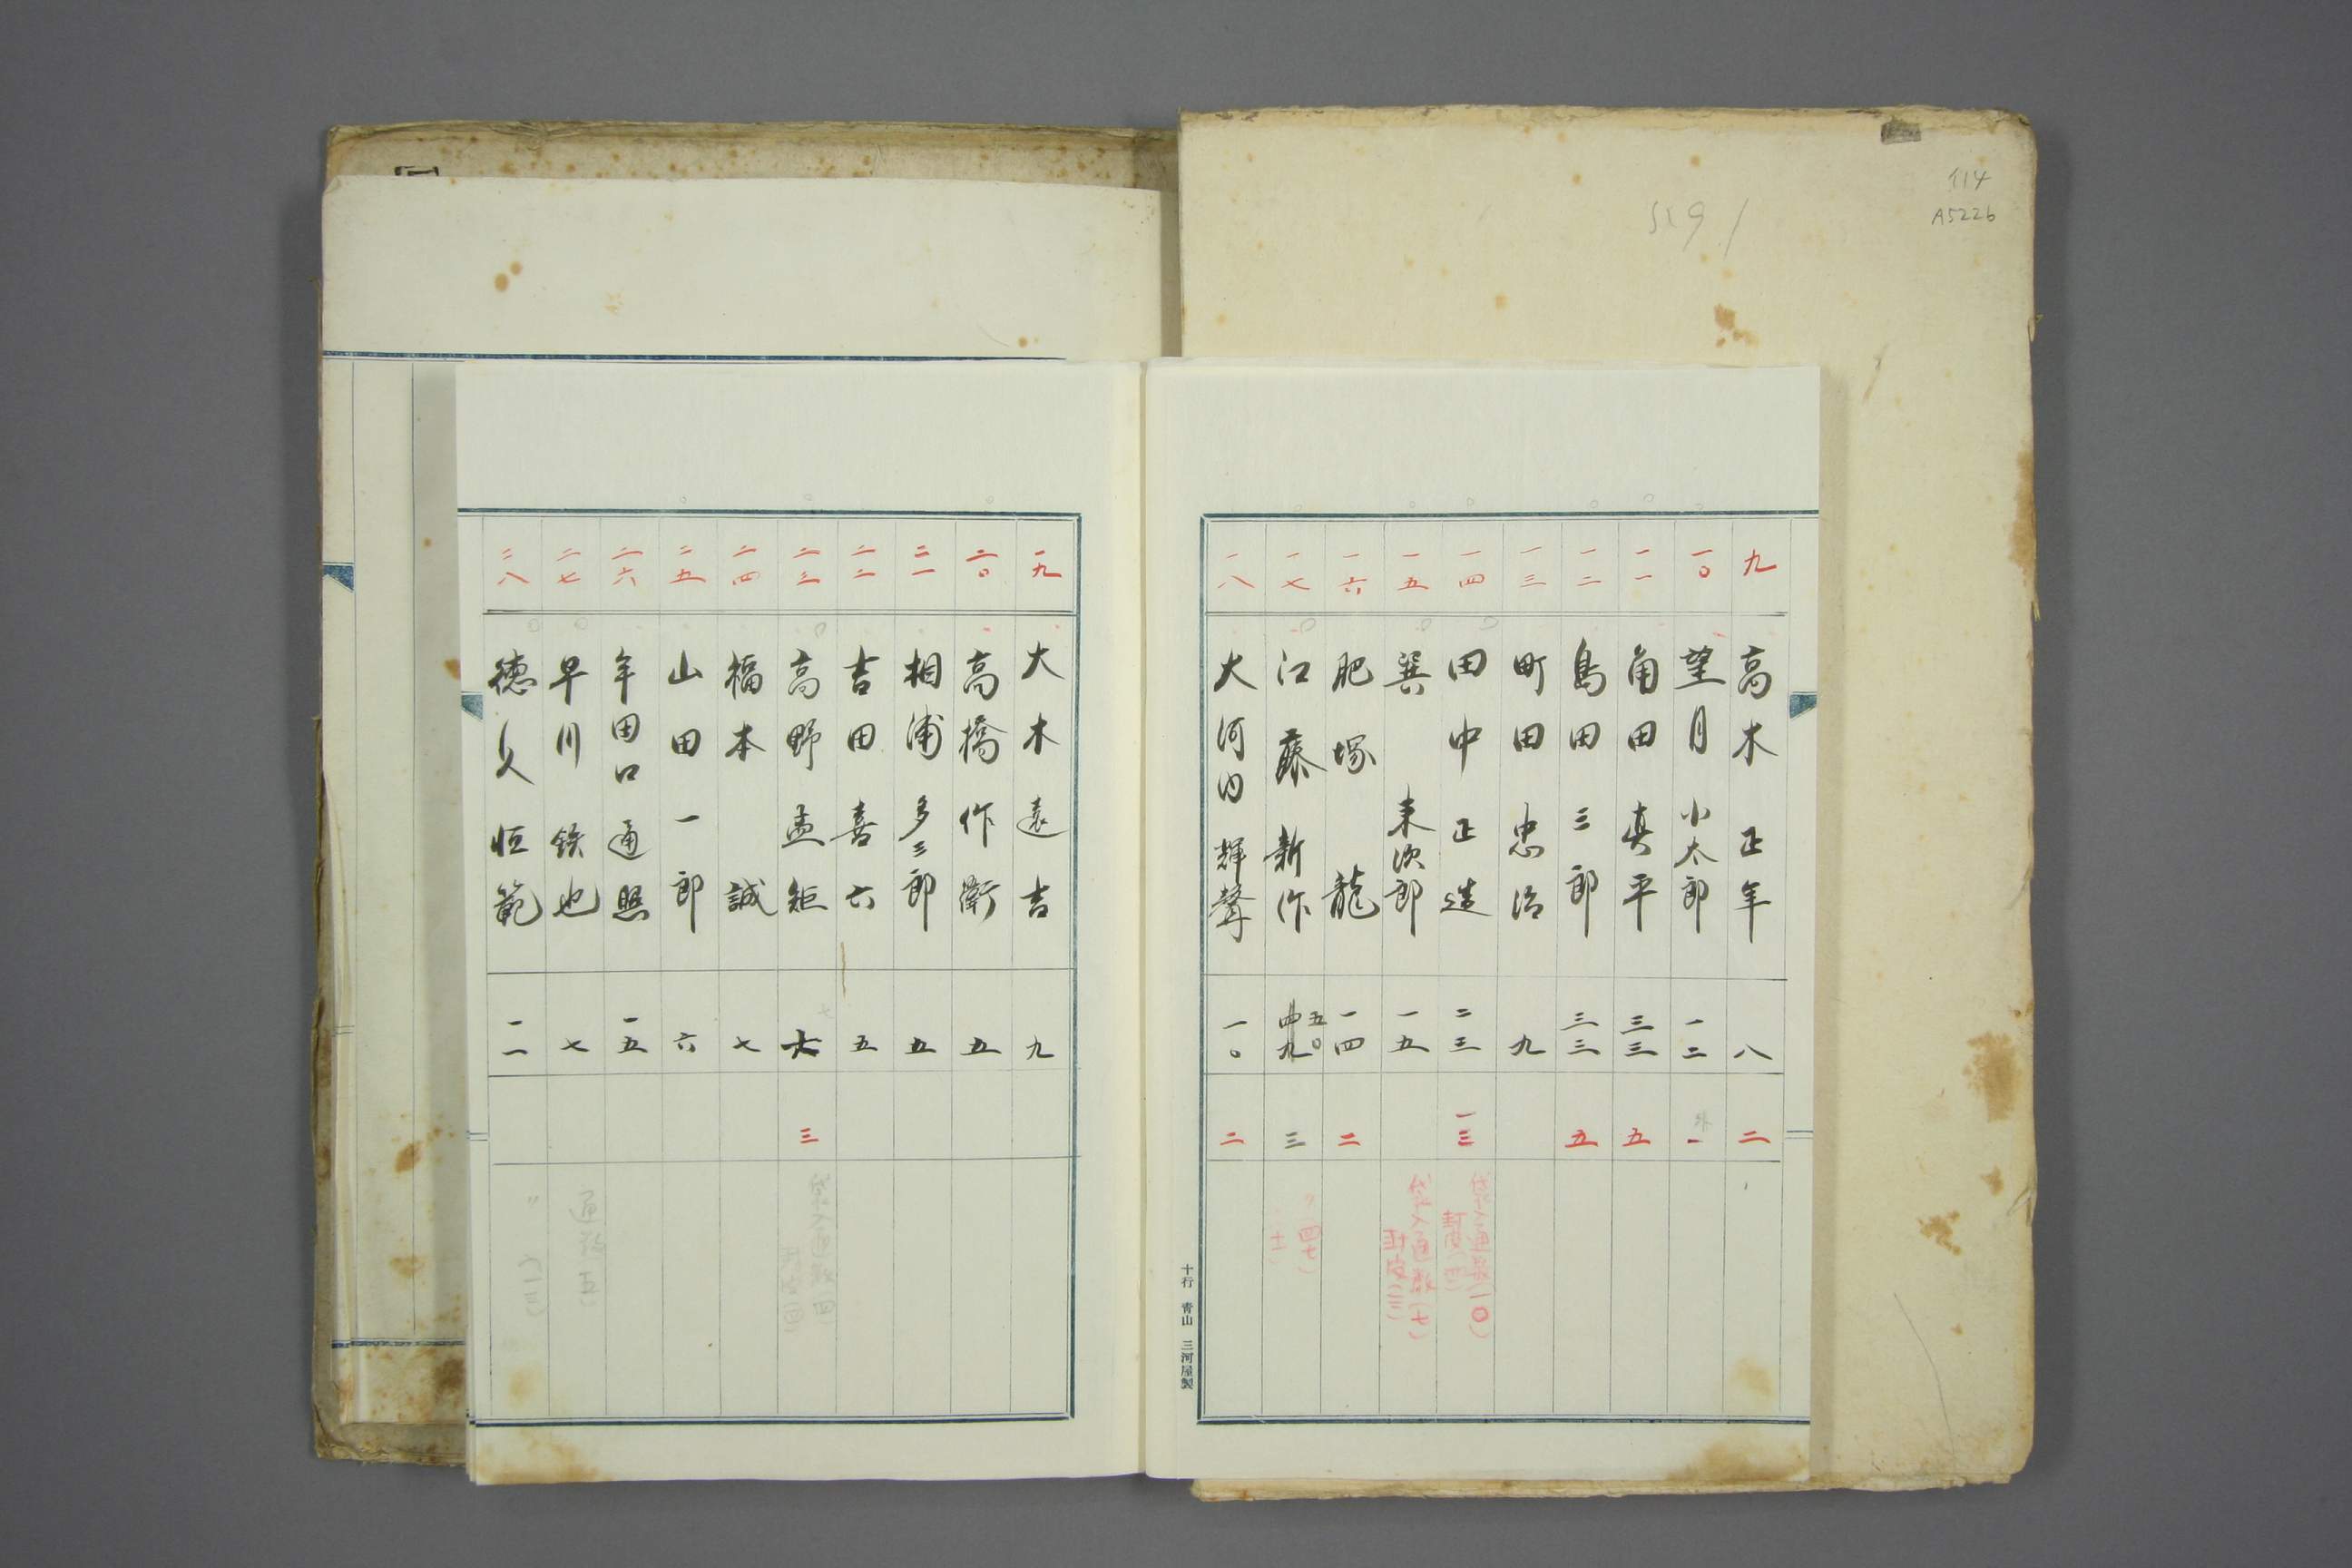 114
A5226
九 高木正年 八 二
一〇 望月小太郎 一二 一
一一 角田真平 三三 五
一二 島田三郎 三三 五
一三 町田忠治 九
一四 田中正造 二三 一三 袋入通数(一〇) 封皮(四)
一五 巽来次郎 一五 袋入通数(十) 封皮(三)
一六 肥塚龍 一四 二
一七 江藤新作 四九 五〇 三 〃 四七)
一八 大河内輝聲 一〇 二
十行 青山 三河屋製
一九 大木遠吉 九
二〇 高橋作衛 五
二一 相浦多三郎 五
二二 吉田喜六 五
二三 高野孟矩 六 七 三 袋入通数(四) 封皮(四)
二四 福本誠 七
二五 山田一郎 六
二六 牟田口通照 一五
二七 早川鉄也 七 通数五)
二八 徳久恒範 一一 〃 (一三)